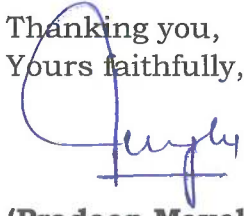 Thanking you,
Yours faithfully,
(Pradeep